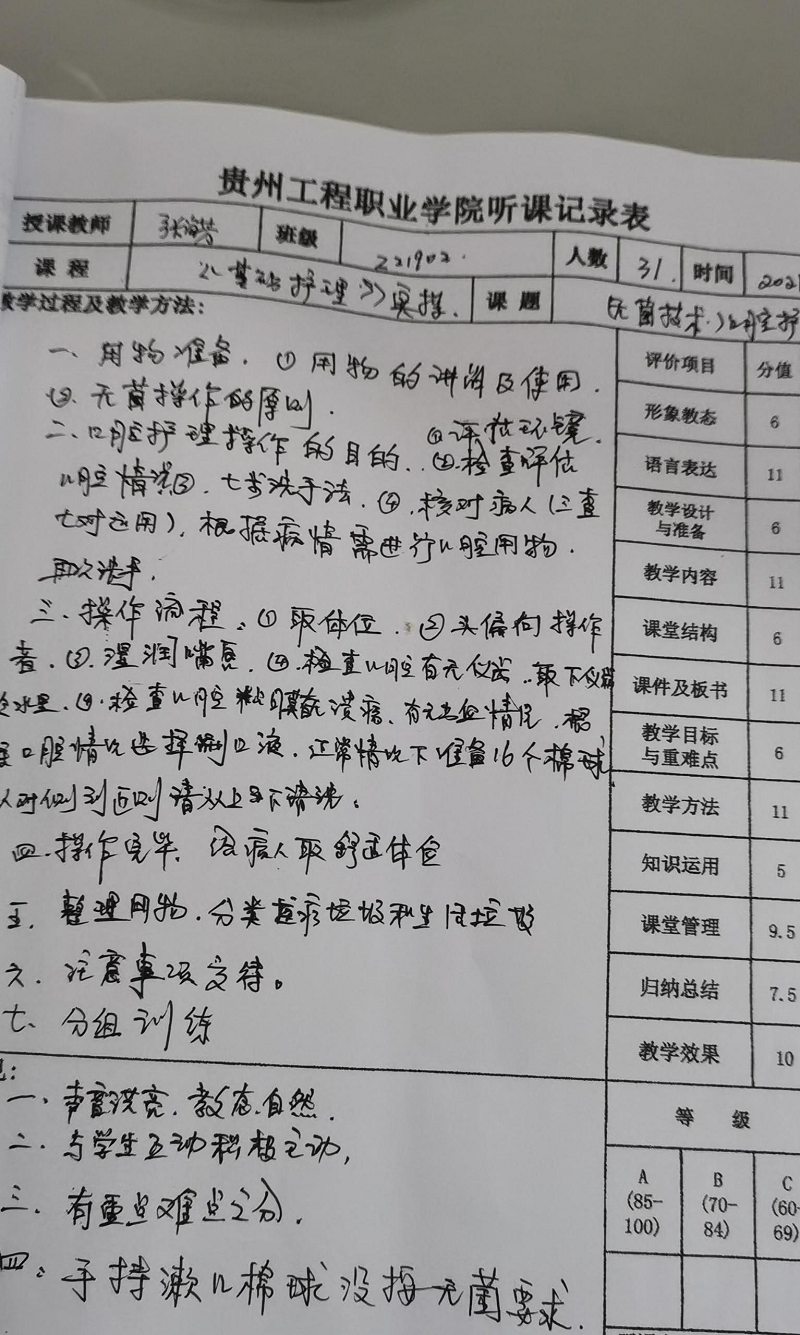 贵州工程职业学院听课记录表
授课教师 张 班级 221902. 人数 31. 时间 202
课程 《基础护理》实操. 课题 (无菌技术.)口腔护
教学过程及教学方法: 评价项目 分值
一、用物准备. ① 用物的讲解及使用.
②. 无菌操作的原则. 形象教态 6
二、口腔护理操作的目的. ①评估环境.
②.检查评估 语言表达 11
口腔情况③. 七步洗手法. ④. 核对病人(三查
七对运用), 根据病情需进行口腔用物. 教学设计与准备 6
再次洗手. 教学内容 11
三、操作流程. ① 取体位. ②头偏向操作 课堂结构 6
者. ③. 湿润嘴唇. ④. 检查口腔有无仪齿..取下仪齿 课件及板书 11
水里. ④.检查口腔粘膜有无溃疡、有无出血情况. 根 教学目标与重难点 6
口腔情况选择漱口液. 正常情况下准备16个棉球 教学方法 11
从对侧到近侧清
四.操作完毕. 病人取舒适体位 知识运用 5
五. 整理用物. 分类医疗垃圾和生活垃圾 课堂管理 9.5
六. 注意事项交待。 归纳总结 7.5
七、分组训练 教学效果 10
:
一、声音洪亮. 教态.自然. 等 级
二、与学生互动积极主动, A B C
三. 有重点难点之分. (85-100) (70-84) (60-69)
四. 手持漱口棉球没按无菌要求.